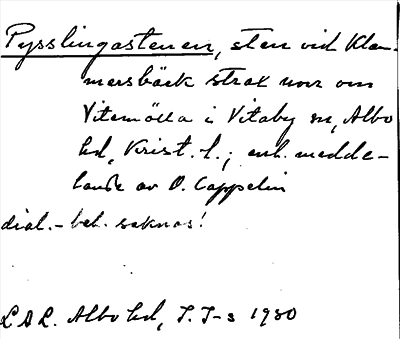 Pysslingastenen, sten vid Klam-
mersbäck strax norr om
Vitemölla i Vitaby sn, Albo
hd, Krist. l.; enl. medde-
lande av O. Cappelin
dial.-bet. saknas!
LAL. Albo hd, I. I-s 1930